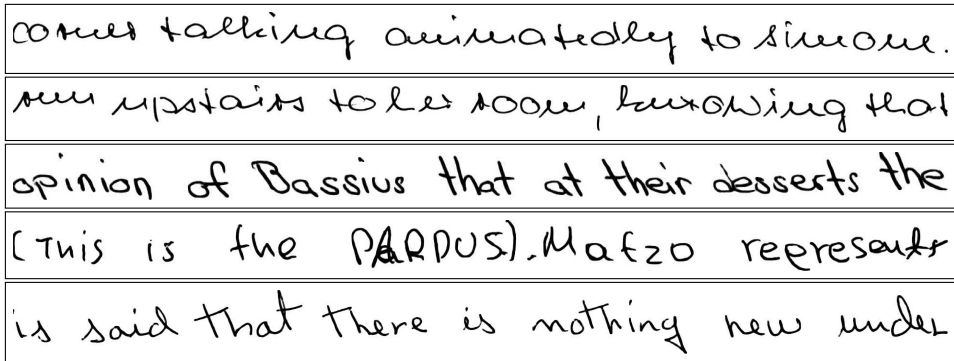 corner talking animatedly to simone.
run upstairs to her room, knowing that
opinion of Bassius that at their desserts the
(This is the PARDUS). Matzo represents
is said that there is nothing new under